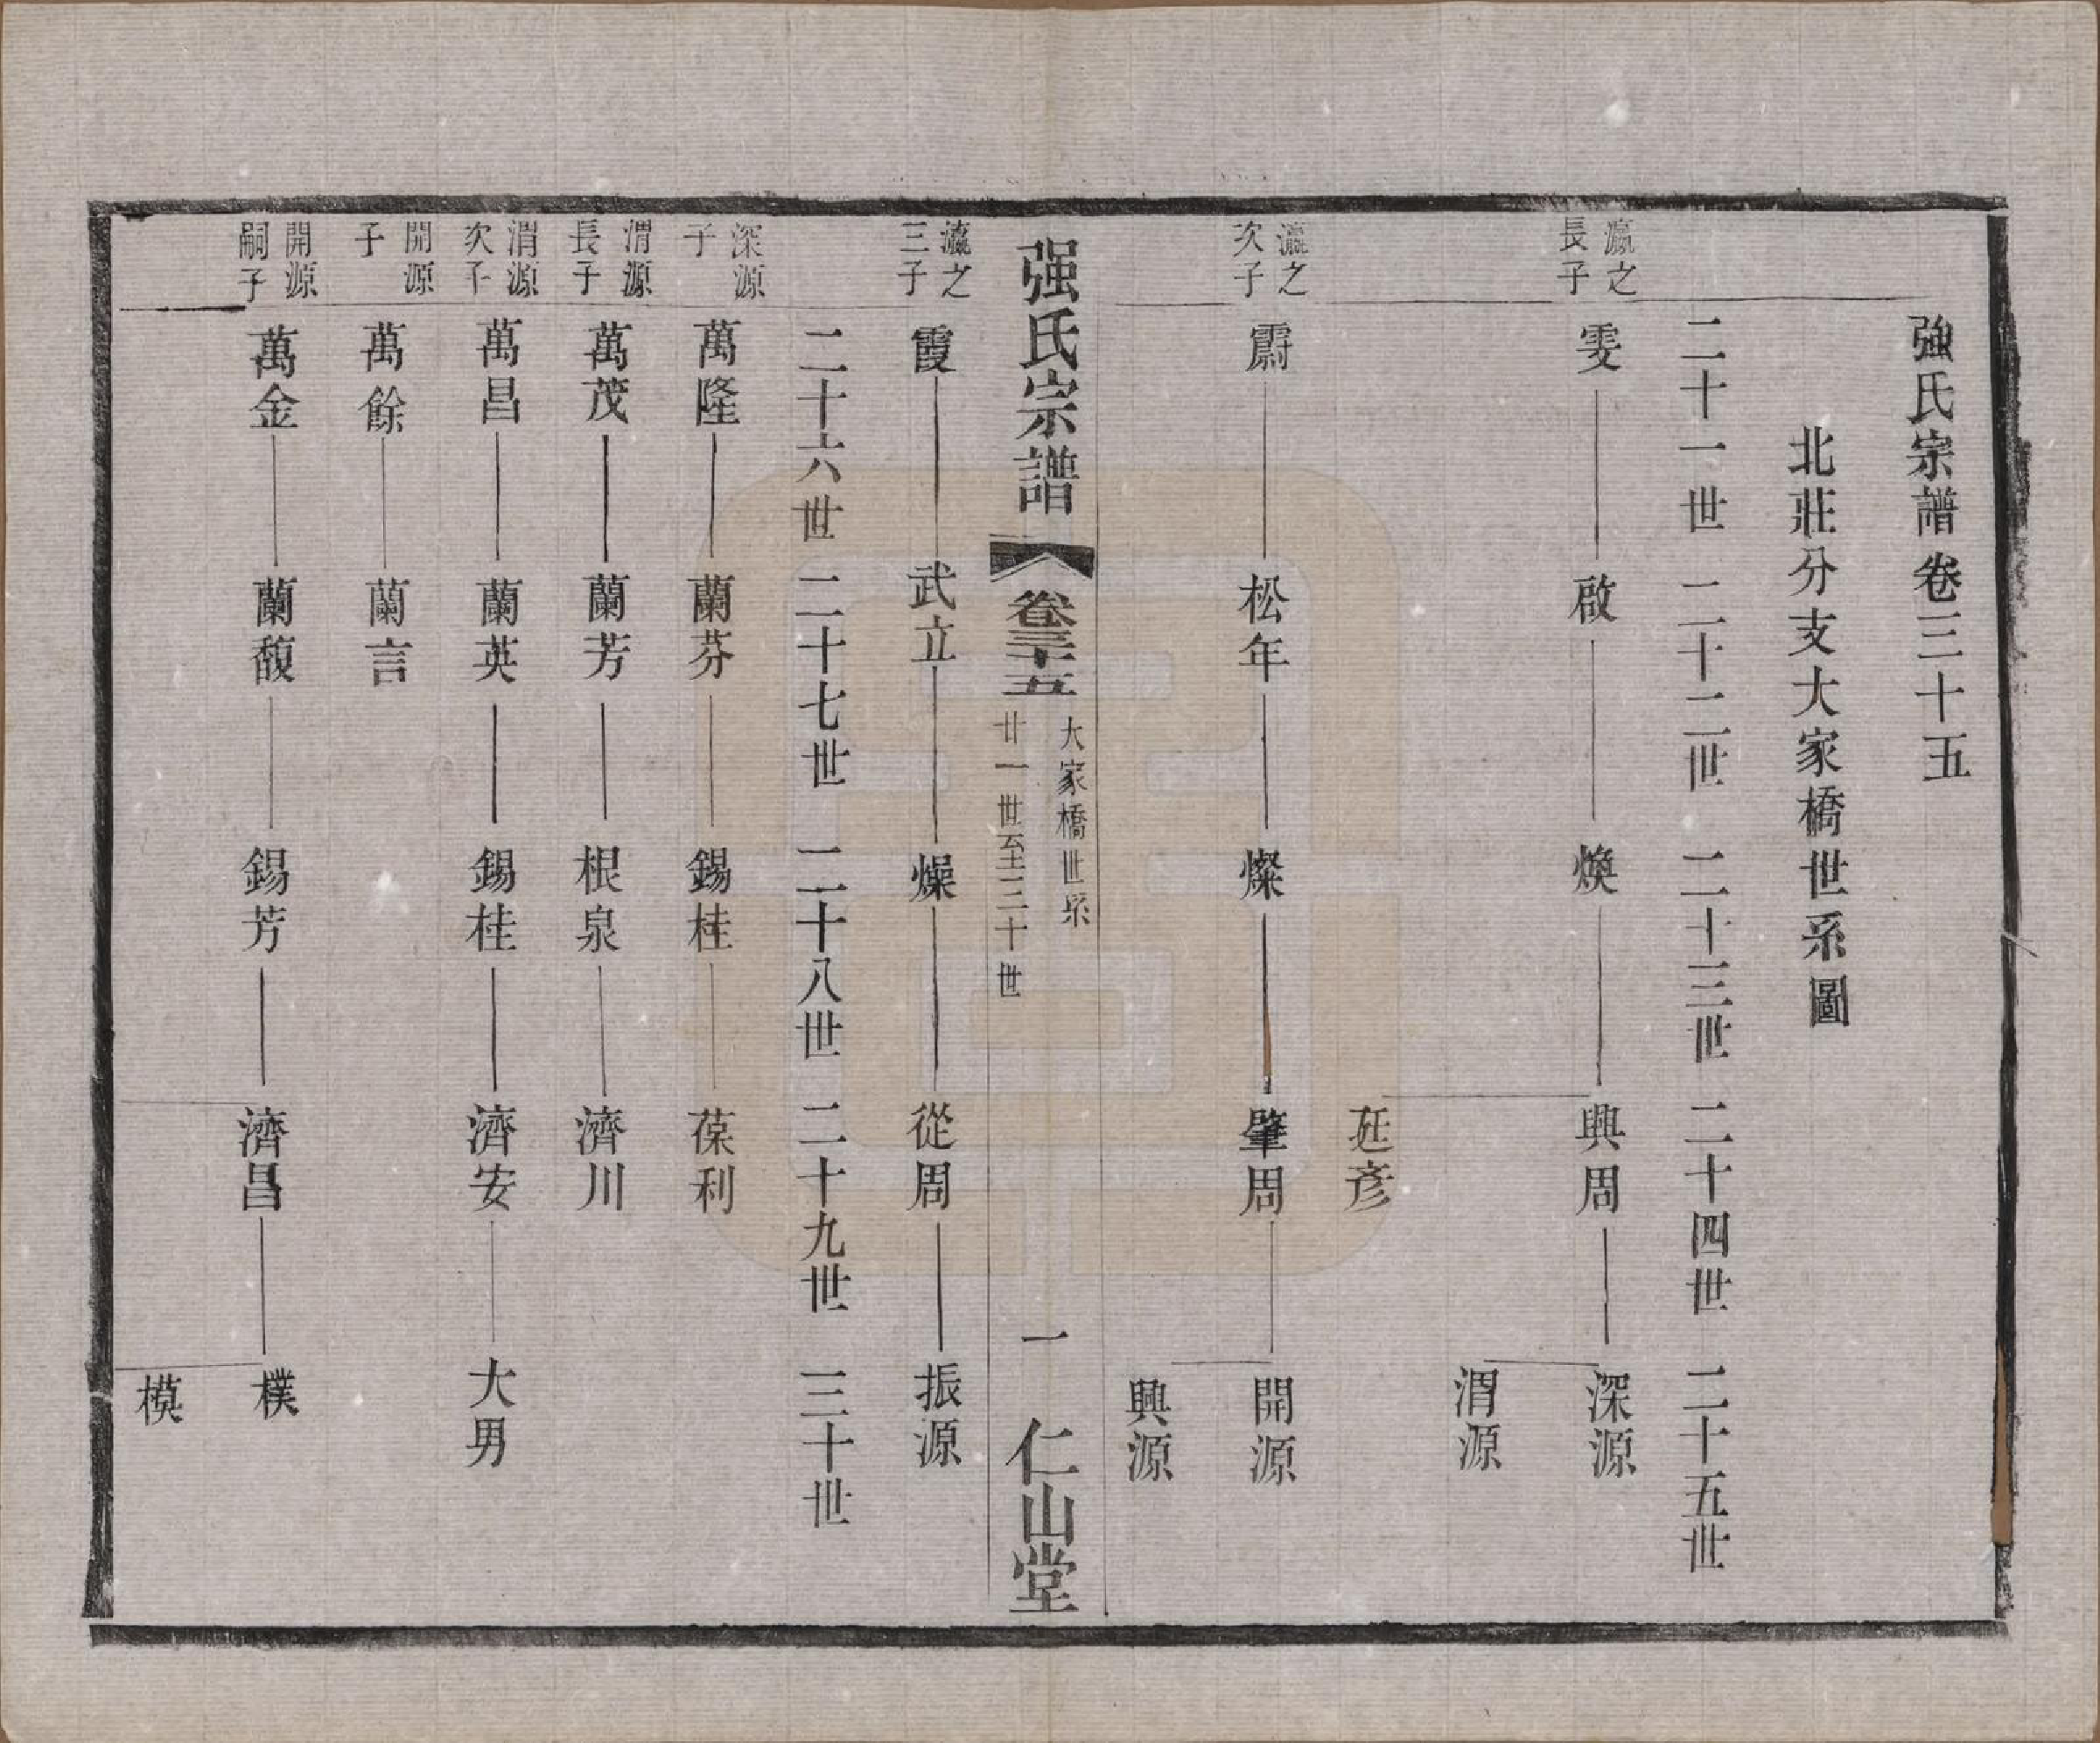 強氏宗譜卷三十五
北莊分支大家橋世系圖
二十一世 二十二世 二十三世 二十四世 二十五世
瀛之長子 雯 啟 煥 興周 深源
渭源
延彥
瀛之次子 霨 松年 燦 肇周 開源
興源
强氏宗譜 卷三十五 大家橋世系 廿一世至三十世 一 仁山堂
瀛之三子 霞 武立 燥 從周 振源
二十六世 二十七世 二十八世 二十九世 三十世
深源子 萬隆 蘭芬 錫桂 葆利
渭源長子 萬茂 蘭芳 根泉 濟川
渭源次子 萬昌 蘭英 錫桂 濟安 大男
開源子 萬餘 蘭言
開源嗣子 萬金 蘭馥 錫芳 濟昌 樸
模